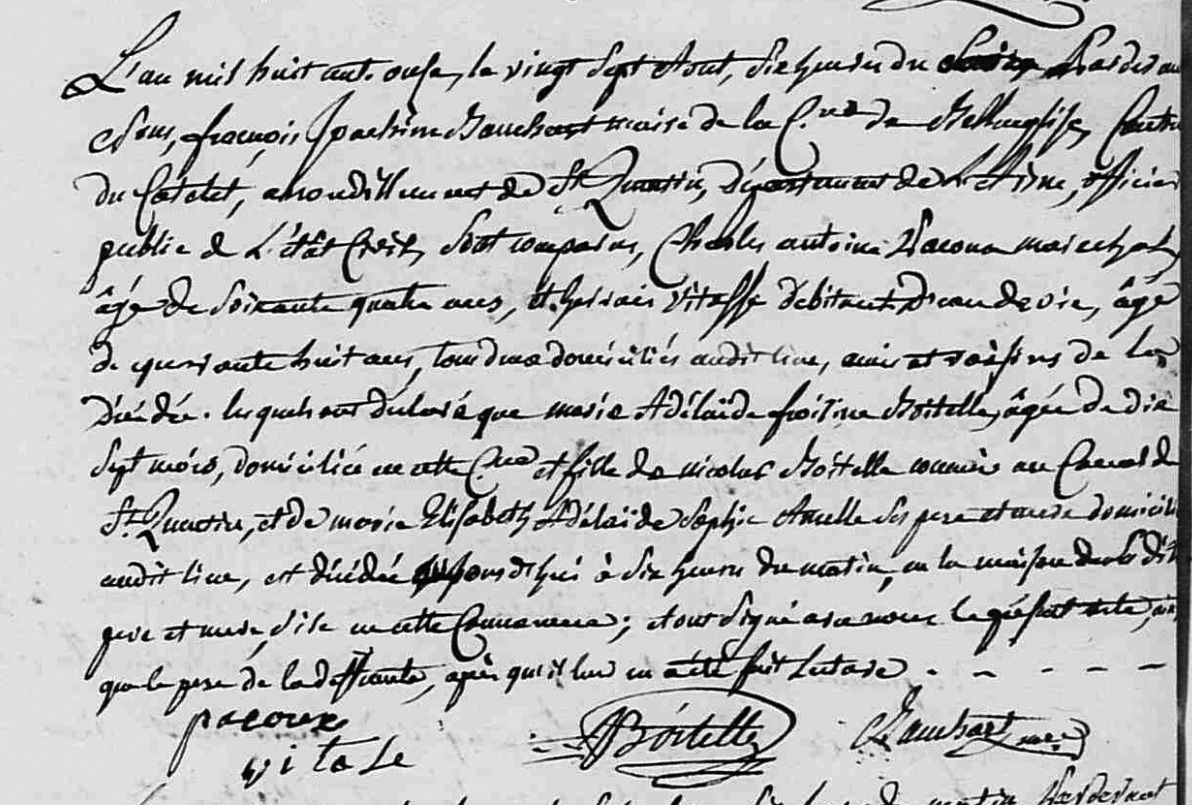 L'an mil huit cent onze, le vingt Sept Aout, Six heures du Soir Pardevant
Nous, françois Joachim Bauchart maire de la C.ne de Bellenglise, Canton
du Câtelet, arrondissement de St Quentin, Département de L'Aisne, officier
public de L'état Civil, Sont comparus, Charles antoine Pacoux marechal,
âgé de Soixante quatre ans, et gervais Vitasse débitant D'eau de vie, âgé
de quarante huit ans, tous deux domiciliés audit lieu, amis et voisins de La
Décédée. lesquels ont déclaré que marie Adélaïde froisine Boitelle, âgée de dix
Sept mois, domiciliée en cette C.ne et fille de nicolas Boitelle commis au Canal de
St Quentin, et de marie Elisabeth Adélaïde Sophie Amelle Ses pere et mere domiciliés
audit lieu, est décédée aujourd'hui à Six heures du matin, en la maison de Ses dits
pere et mere, Sise en cette Commune; et ont Signé avec nous le présent acte, ainsi
que le pere de la deffunte, après qu'il leur en a été fait Lecture . - - - - -
pacoux ABoitelle Bauchart mre
vitase